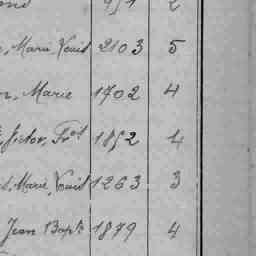 Marie Louis 2103 5
Marie 1702 4
Victor, Frois 1852 4
Marie, Louis 1263 3
Jean Bapt. 1879 4